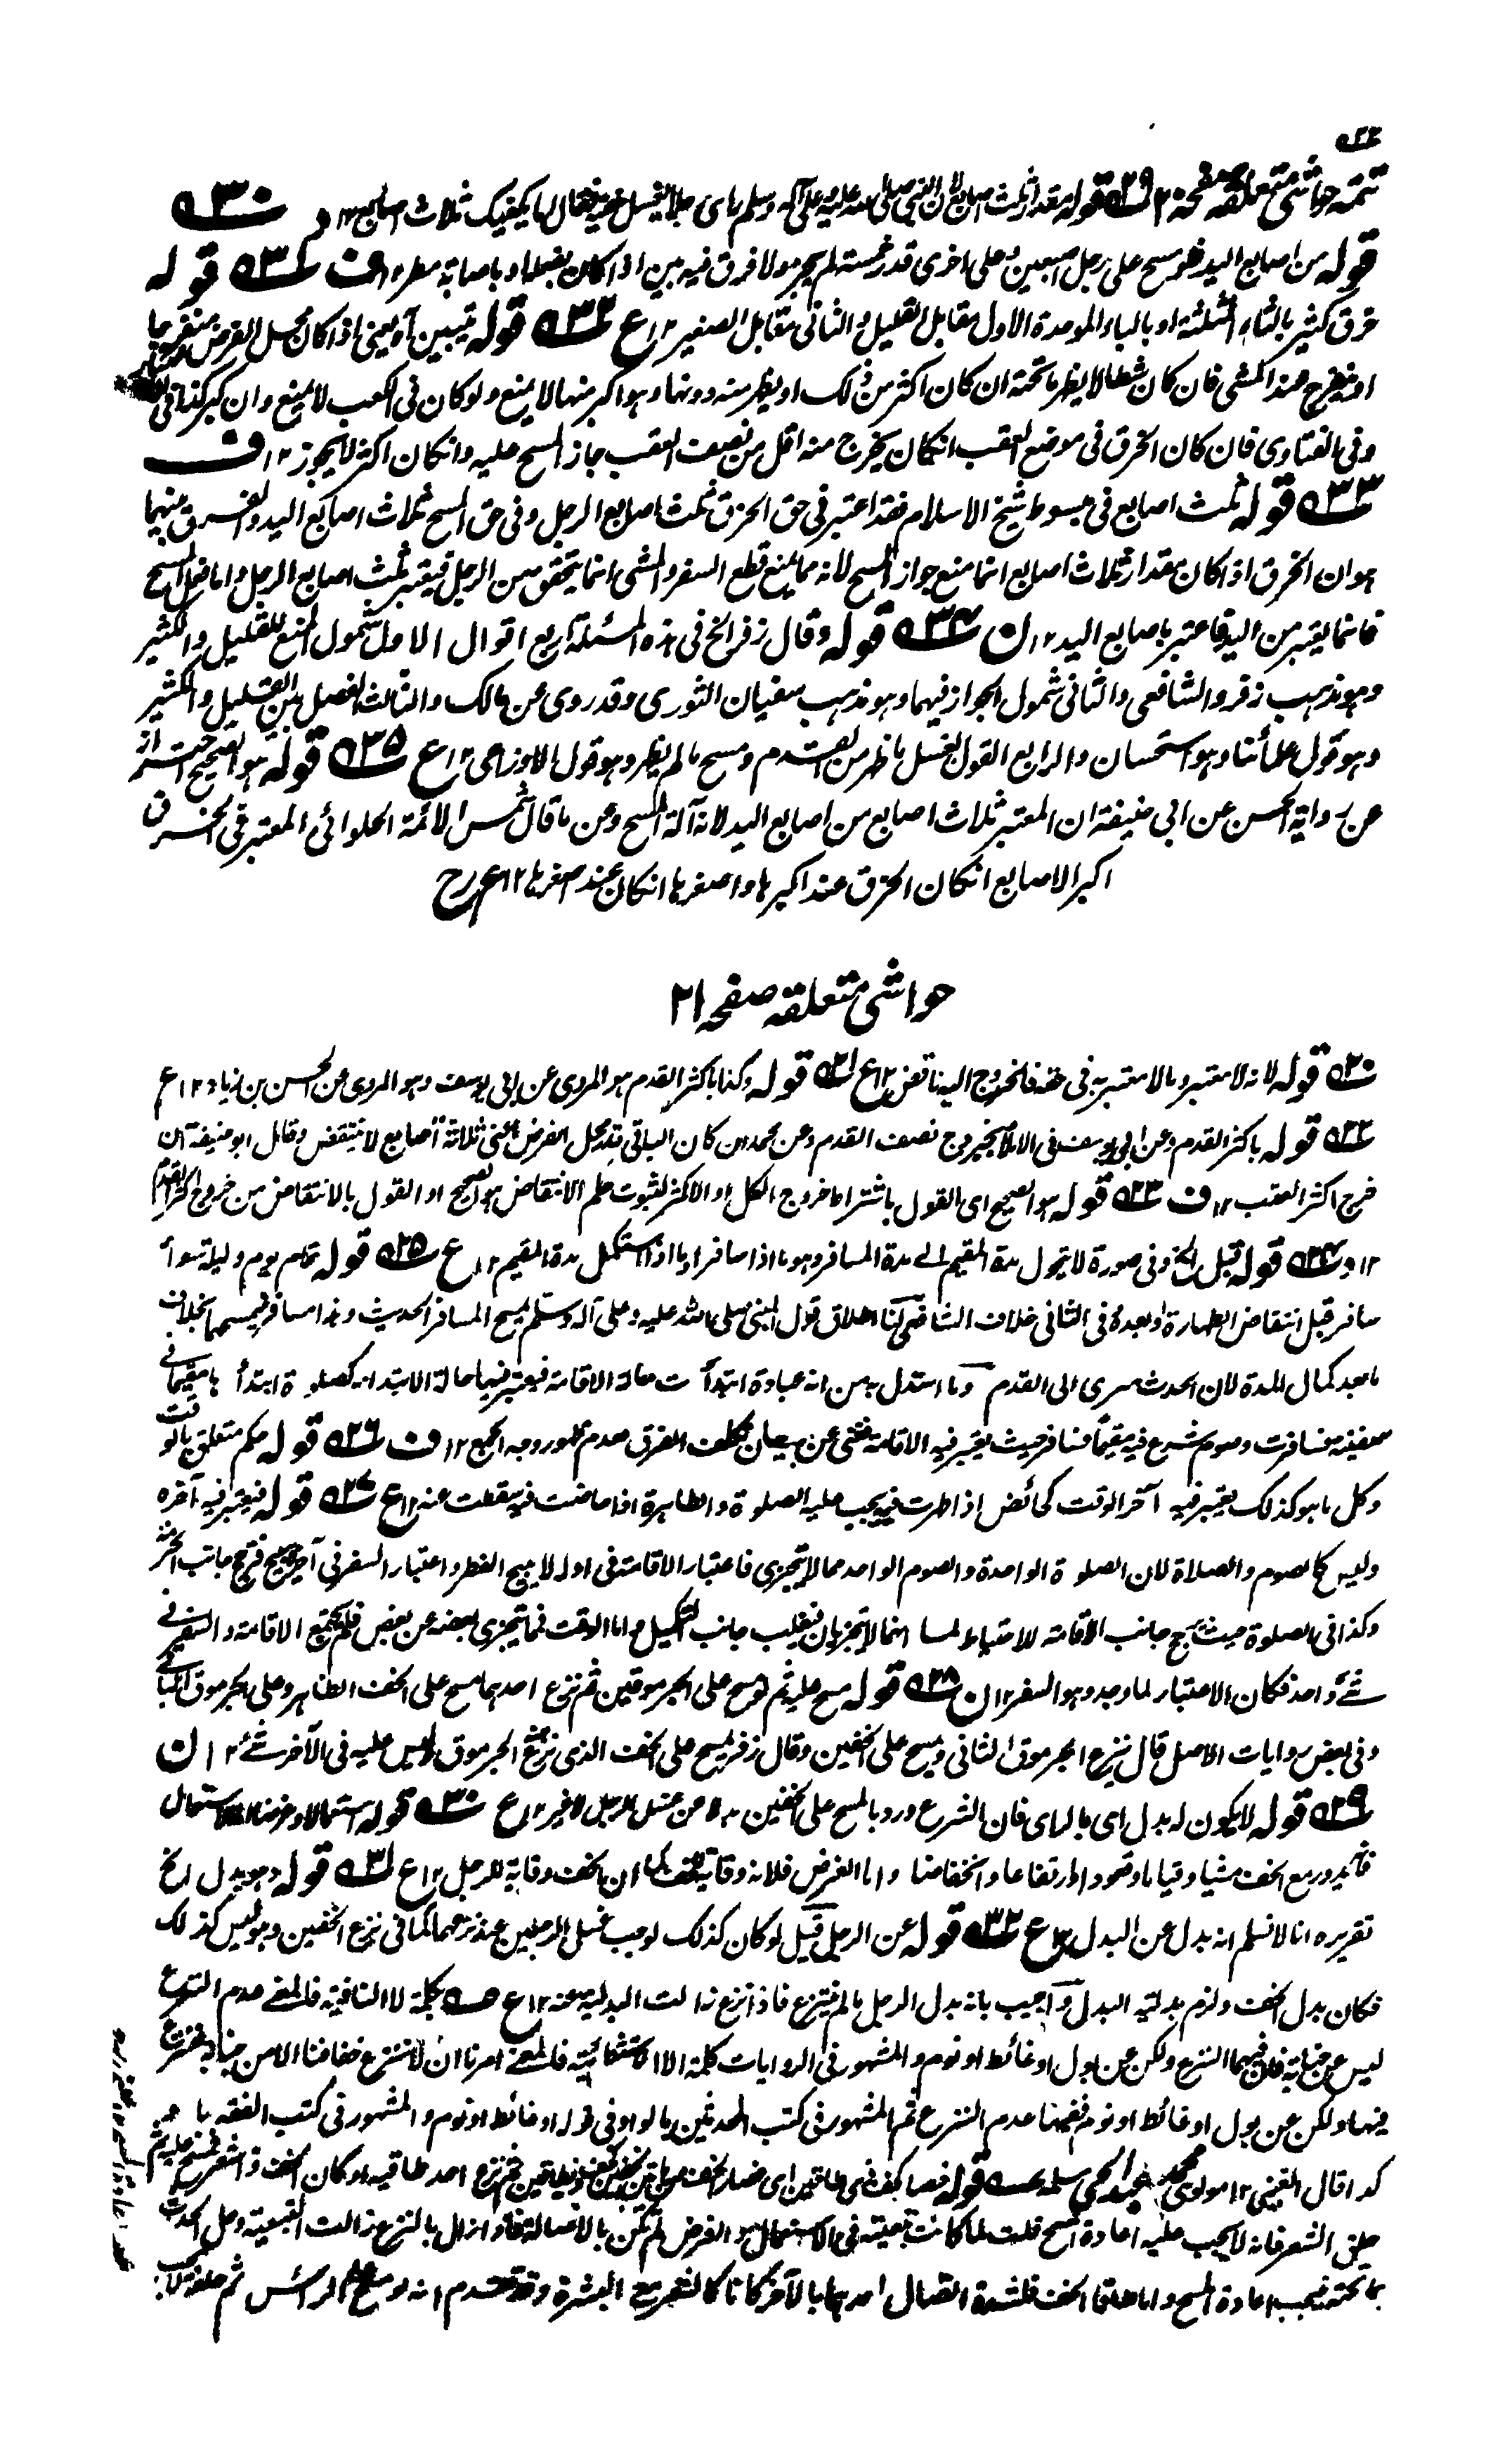 تتمه حواشی متعلقه صفحه ۲۰ ۲۹ قوله مقدار ثلث اصابع لان النبی صلی الله علیه وعلی آله وسلم رای رجلا یغسل خفیه فقال انما یکفیک ثلاث اصابع ۱۲ د ۳۰
قوله من اصابع الید فلو مسح علی رجل اصبعین وعلی اخری قدر خمسته لم یجز ولا فرق فیه بین اذا کان بفعله او باصابة مطر ۱۲ ف ۳۱ قوله
خرق کثیر بالثاء المثلثه او بالباء الموحدة الاول مقابل القلیل والثانی مقابل الصغیر ۱۲ ع ۳۲ قوله تبیین آه یعنی اذا کان محل الفرض منفرجا
او ینفرج عند المشی فان کان شطالا یظهر ما تحته ان کان اکثر من ذلک او یظهر منه دونها وهو اکبر منها لا یمنع ولو کان فی الکعب لا یمنع وان کبر کذا فی
وفی الفتاوی فان کان الخرق فی موضع العقب انکان یخرج منه اقل من نصف العقب جاز المسح علیه وانکان اکثر لا یجوز ۱۲ ف
۳۳ قوله ثلث اصابع فی مبسوط شیخ الاسلام فقد اعتبر فی حق الخرق ثلث اصابع الرجل وفی حق المسح ثلاث اصابع الید والفرق بینهما
هو ان الخرق اذا کان مقدار ثلاث اصابع انما منع جواز المسح لانه مما یمنع قطع السفر والمشی انما یتحقق من الرجل فیعتبر ثلث اصابع الرجل واما فعل المسح
فانما یعتبر من الید فاعتبر باصابع الید ۱۲ ن ۳۴ قوله وقال زفر الخ فی هذه المسئلة اربع اقوال الاول شمول المنع للقلیل والکثیر
وهو مذهب زفر والشافعی والثانی شمول الجواز فیهما وهو مذهب سفیان الثوری وقد روی عن مالک والثالث الفصل بین القلیل والکثیر
وهو قول علمائنا وهو استحسان والرابع القول بغسل ما ظهر من القدم ومسح ما لم یظهر وهو قول الاوزاعی ۱۲ ع ۳۵ قوله هو الصحیح احتراز
عن روایة الحسن عن ابی حنیفة ان المعتبر ثلاث اصابع من اصابع الید لانه آلة المسح وعن ما قال شمس الائمة الحلوائی المعتبر فی الخرق
اکبر الاصابع انکان الخرق عند اکبرها واصغرها انکان عند اصغرها ۱۲ ع رح
حواشی متعلقه صفحه ۲۱
۲۰ قوله لانه لا معتبر وما لا معتبر به فی حقه فالخروج الیه ناقض ۱۲ ع ۲۱ قوله وکذا باکثر القدم هو المروی عن ابی یوسف وهو المروی عن الحسن بن زیاد ۱۲ ع
۲۲ قوله باکثر القدم وعن ابی یوسف فی الاملاء بخروج نصف القدم وعن محمد ان کان الباقی قدر محل الفرض اعنی ثلاثة اصابع لا ینتقض وقال ابو حنیفة ان
خرج اکثر العقب ۱۲ ف ۲۳ قوله هو الصحیح ای القول باشتراط خروج الکل او الاکثر لثبوت حکم الانتقاض هو الصحیح او القول بالانتقاض من خروج اکثر القدم
۱۲ د ۲۴ قوله قبل الخ وفی صورة لا یتحول مدة المقیم الی مدة المسافر وهو ما اذا سافر بعد ما اذا استکمل مدة المقیم ۱۲ ع ۲۵ قوله تمام یوم ولیلة سواء
سافر قبل انتقاض الطهارة او بعده فی الثانی خلاف الشافعی لنا اطلاق قول النبی صلی الله علیه وعلی آله وسلم یمسح المسافر الحدیث وهذا مسافر فیمسحها بخلاف
ما بعد کمال المدة لان الحدث سری الی القدم وما استدل به من انه عبادة ابتدأت حالة الاقامة فیعتبر فیها حالة الابتداء کصلوة ابتدأها مقیما فی
سفینة فسافرت وصوم شرع فیه مقیما فسافر حیث یعتبر فیه الاقامة فغنی عن بیان تکلف الفرق لعدم ظهور وجه الجمع ۱۲ ف ۲۶ قوله حکم متعلق بالوقت
وکل ما هو کذلک یعتبر فیه آخر الوقت کالحائض اذا طهرت فیه یجب علیه الصلوة والطاهرة اذا حاضت فیه سقطت عنه ۱۲ ع ۲۷ قوله فیعتبر فیه آخره
ولیس کالصوم والصلاة لان الصلوة الواحدة والصوم الواحد مما لا یتجزی فاعتبار الاقامة فی اوله لا یبیح الفطر واعتبار السفر فی آخره یبیح فرجح جانب الحرمة
وکذا فی الصلوة حیث یرجح جانب الاقامة للاحتیاط لما انهما لا یتجزیان فیغلب جانب التکمیل واما الوقت فمما یتجزی بعضه عن بعض فلم یجتمع الاقامة والسفر فی
شئ واحد فکان الاعتبار لما وجد وهو السفر ۱۲ ن ۲۸ قوله مسح علیه ثم لو مسح علی الجرموقین ثم نزع احدهما مسح علی الخف الظاهر وعلی الجرموق الباقی
وفی بعض روایات الاصل قال ینزع الجرموق الثانی ویمسح علی الخفین وقال زفر یمسح علی الخف الذی نزع الجرموق ولیس علیه فی الآخر شئ ۱۲ ن
۲۹ قوله لا یکون له بدل ای بالرای فان الشرع ورد بالمسح علی الخفین بدلا عن غسل الرجل لا غیر ۱۲ ع ۳۰ قوله استعمالا وغرضا اما الاستعمال
فانه یدور مع الخف مشیا وقیاما وقعودا وارتفاعا وانخفاضا واما الغرض فلانه وقایة للخف کما ان الخف وقایة للرجل ۱۲ ع ۳۱ قوله وهو بدل الخ
تقریره انا لا نسلم انه بدل عن البدل ۱۲ ع ۳۲ قوله عن الرجل قیل لو کان کذلک لوجب غسل الرجلین عند نزعهما کما فی نزع الخفین وهو لیس کذلک
فکان بدل الخف ولزم بدلیة البدل واجیب بانه بدل الرجل ما لم ینزع فاذا نزع زالت البدلیة عنه ۱۲ ع کلمة لا النافیة فالمعنی عدم النزع
لیس عن جنابة فان فیها النزع ولکن عن بول او غائط او نوم والمشهور فی الروایات کلمة الا الاستثنائیة فالمعنی امرنا ان لا ننزع خفافنا الا من جنابة فننزع
فیها ولکن عن بول او غائط او نوم فیفهمنا عدم النزع ثم المشهور فی کتب المحدثین بالواو فی قوله او غائط او نوم والمشهور فی کتب الفقه
کذا قال العینی ۱۲ مولوی محمد عبد الحی سلمه قوله فصار کخف ذی طاقین ای احد طاقیه او کان الخف ذا شعر فمسح علیه ثم
حلق الشعر فانه لا یجب علیه اعادة المسح قلت لما کانت تبعیته فی الاستعمال والغرض لم تکن بالاصالة فاذا زال بالنزع زالت التبعیة وحل الحدث
بما تحته فیجب اعادة المسح واما طاقا الخف فلشدة اتصال احدهما بالآخر کانا کالشعر مع البشرة وقد تقدم انه لو مسح علی الراس ثم حلقه لا یجب